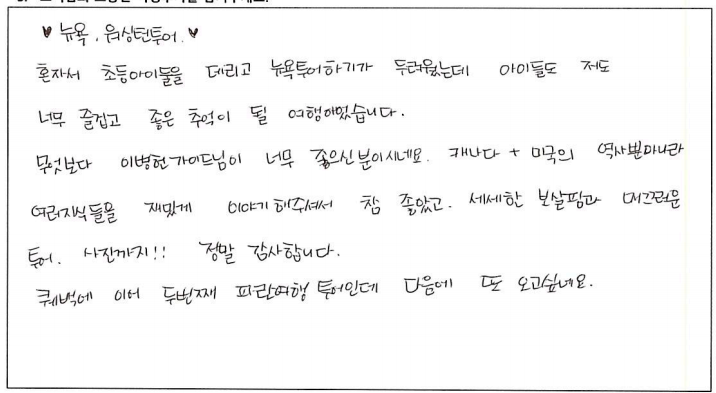 ♥ 뉴욕, 워싱턴투어. ♥
혼자서 초등아이들을 데리고 뉴욕투어하기가 두려웠는데 아이들도 저도
너무 즐겁고 좋은 추억이 될 여행이었습니다.
무엇보다 이병헌가이드님이 너무 좋으신분이시네요. 캐나다 + 미국의 역사뿐아니라
여러지식들을 재밌게 이야기해주셔서 참 좋았고. 세세한 보살핌과 매끄러운
투어. 사진까지!! 정말 감사합니다.
퀘벡에 이어 두번째 파란여행 투어인데 다음에 또 오고싶네요.